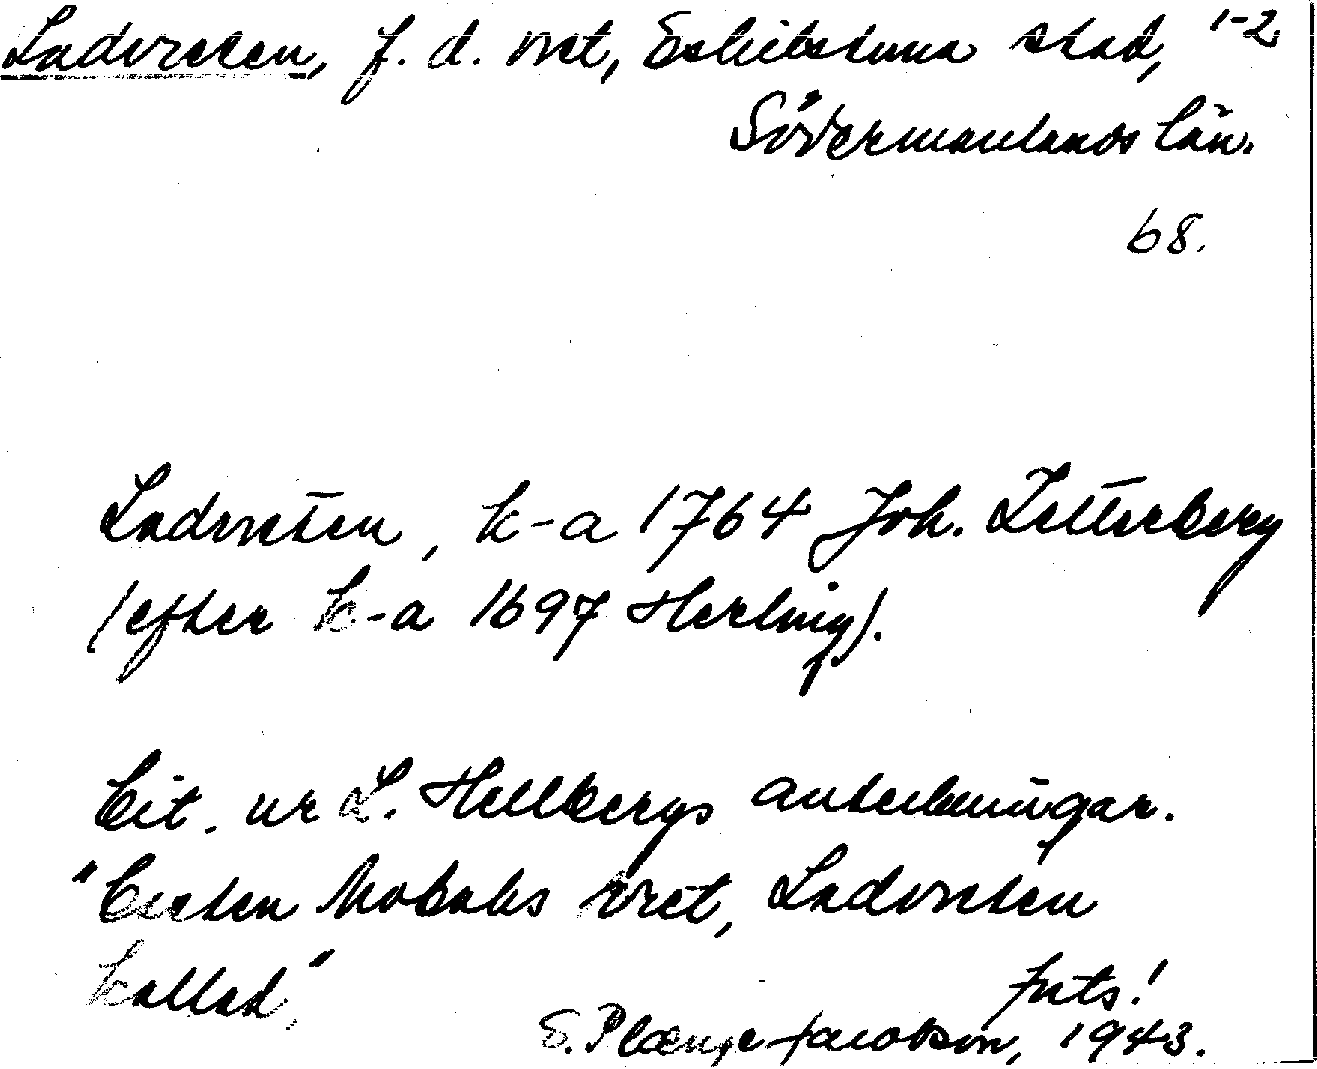 Ladvreten, f. d. vret, Eskilstuna stad, 1-2
Södermanlands län.
68.
Ladvreten, k-a 1764 Joh. Zetterberg
(efter k-a 1697 Herling).
Cit. ur L. Hellbergs anteckningar.
"Cirsten Mobacks vret, Ladvreten
kallad,"
forts!
S. Plænge Jacobson, 1943.